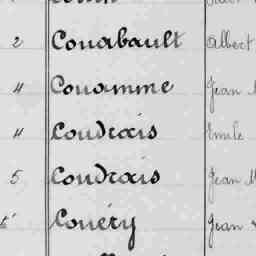 2 Couabault Albert
4 Couamme Jean
4 Coudrais Emile
5 Coudrais Jean
5 Couéry Jean